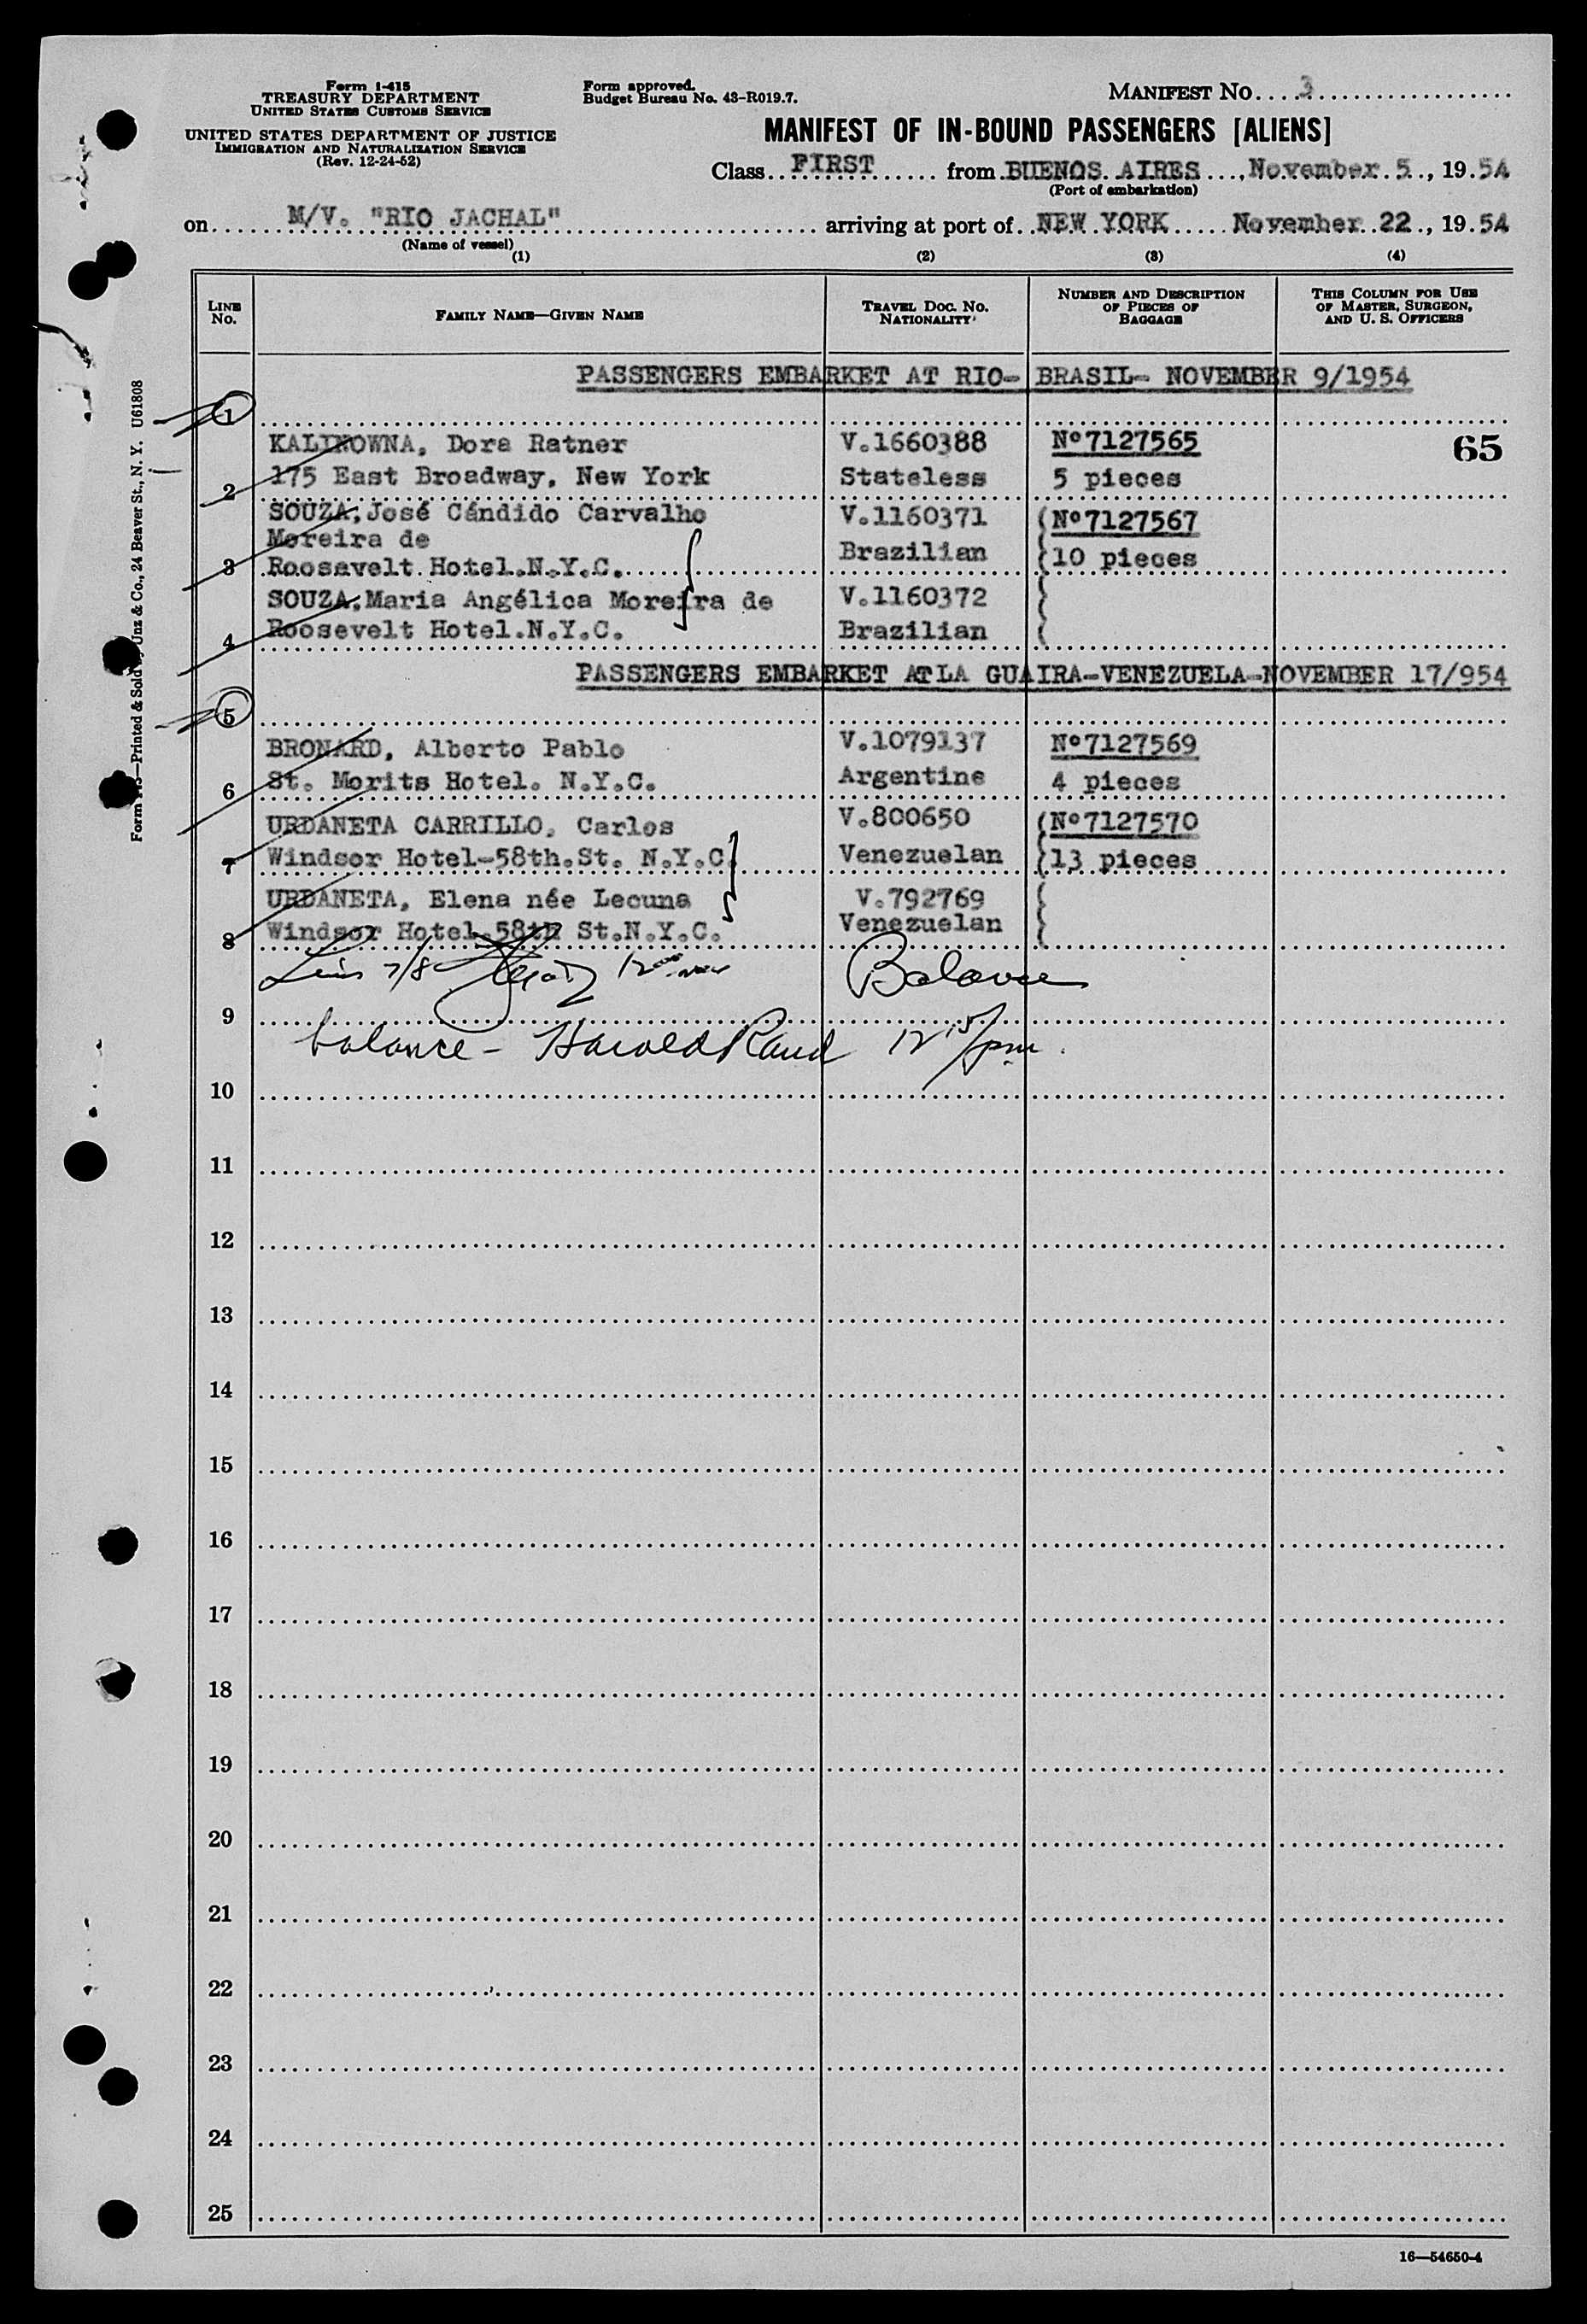 Form I-415
TREASURY DEPARTMENT
UNITED STATES CUSTOMS SERVICE
UNITED STATES DEPARTMENT OF JUSTICE
IMMIGRATION AND NATURALIZATION SERVICE
(Rev. 12-24-52)
Form approved.
Budget Bureau No. 43-R019.7.
MANIFEST NO. 3
MANIFEST OF IN-BOUND PASSENGERS [ALIENS]
Class FIRST from BUENOS AIRES, November 5, 1954
(Port of embarkation)
on M/V. "RIO JACHAL" arriving at port of NEW YORK November 22, 1954
(Name of vessel)
(1) (2) (3) (4)
LINE NO. FAMILY NAME—GIVEN NAME TRAVEL DOC. NO. NATIONALITY NUMBER AND DESCRIPTION OF PIECES OF BAGGAGE THIS COLUMN FOR USE OF MASTER, SURGEON, AND U. S. OFFICERS
PASSENGERS EMBARKET AT RIO- BRASIL- NOVEMBER 9/1954
1
KALINOWNA, Dora Ratner V.1660388 Nº7127565 65
2 175 East Broadway, New York Stateless 5 pieces
SOUZA,José Cándido Carvalho V.1160371 Nº7127567
Moreira de
3 Roosavelt Hotel.N.Y.C. Brazilian 10 pieces
SOUZA,Maria Angélica Moreira de V.1160372
4 Roosevelt Hotel.N.Y.C. Brazilian
PASSENGERS EMBARKET AT LA GUAIRA-VENEZUELA-NOVEMBER 17/954
5
BRONARD, Alberto Pablo V.1079137 Nº7127569
6 St. Morits Hotel. N.Y.C. Argentine 4 pieces
URDANETA CARRILLO, Carlos V.800650 Nº7127570
7 Windsor Hotel-58th.St. N.Y.C. Venezuelan 13 pieces
URDANETA, Elena née Lecuna V.792769
8 Windsor Hotel.58th St.N.Y.C. Venezuelan
7/8 Balance
9
balance - Harold Rand 12 15/pm.
10
11
12
13
14
15
16
17
18
19
20
21
22
23
24
25
16—54650-4
Printed & Sold by Unz & Co., 24 Beaver St., N. Y. U61808